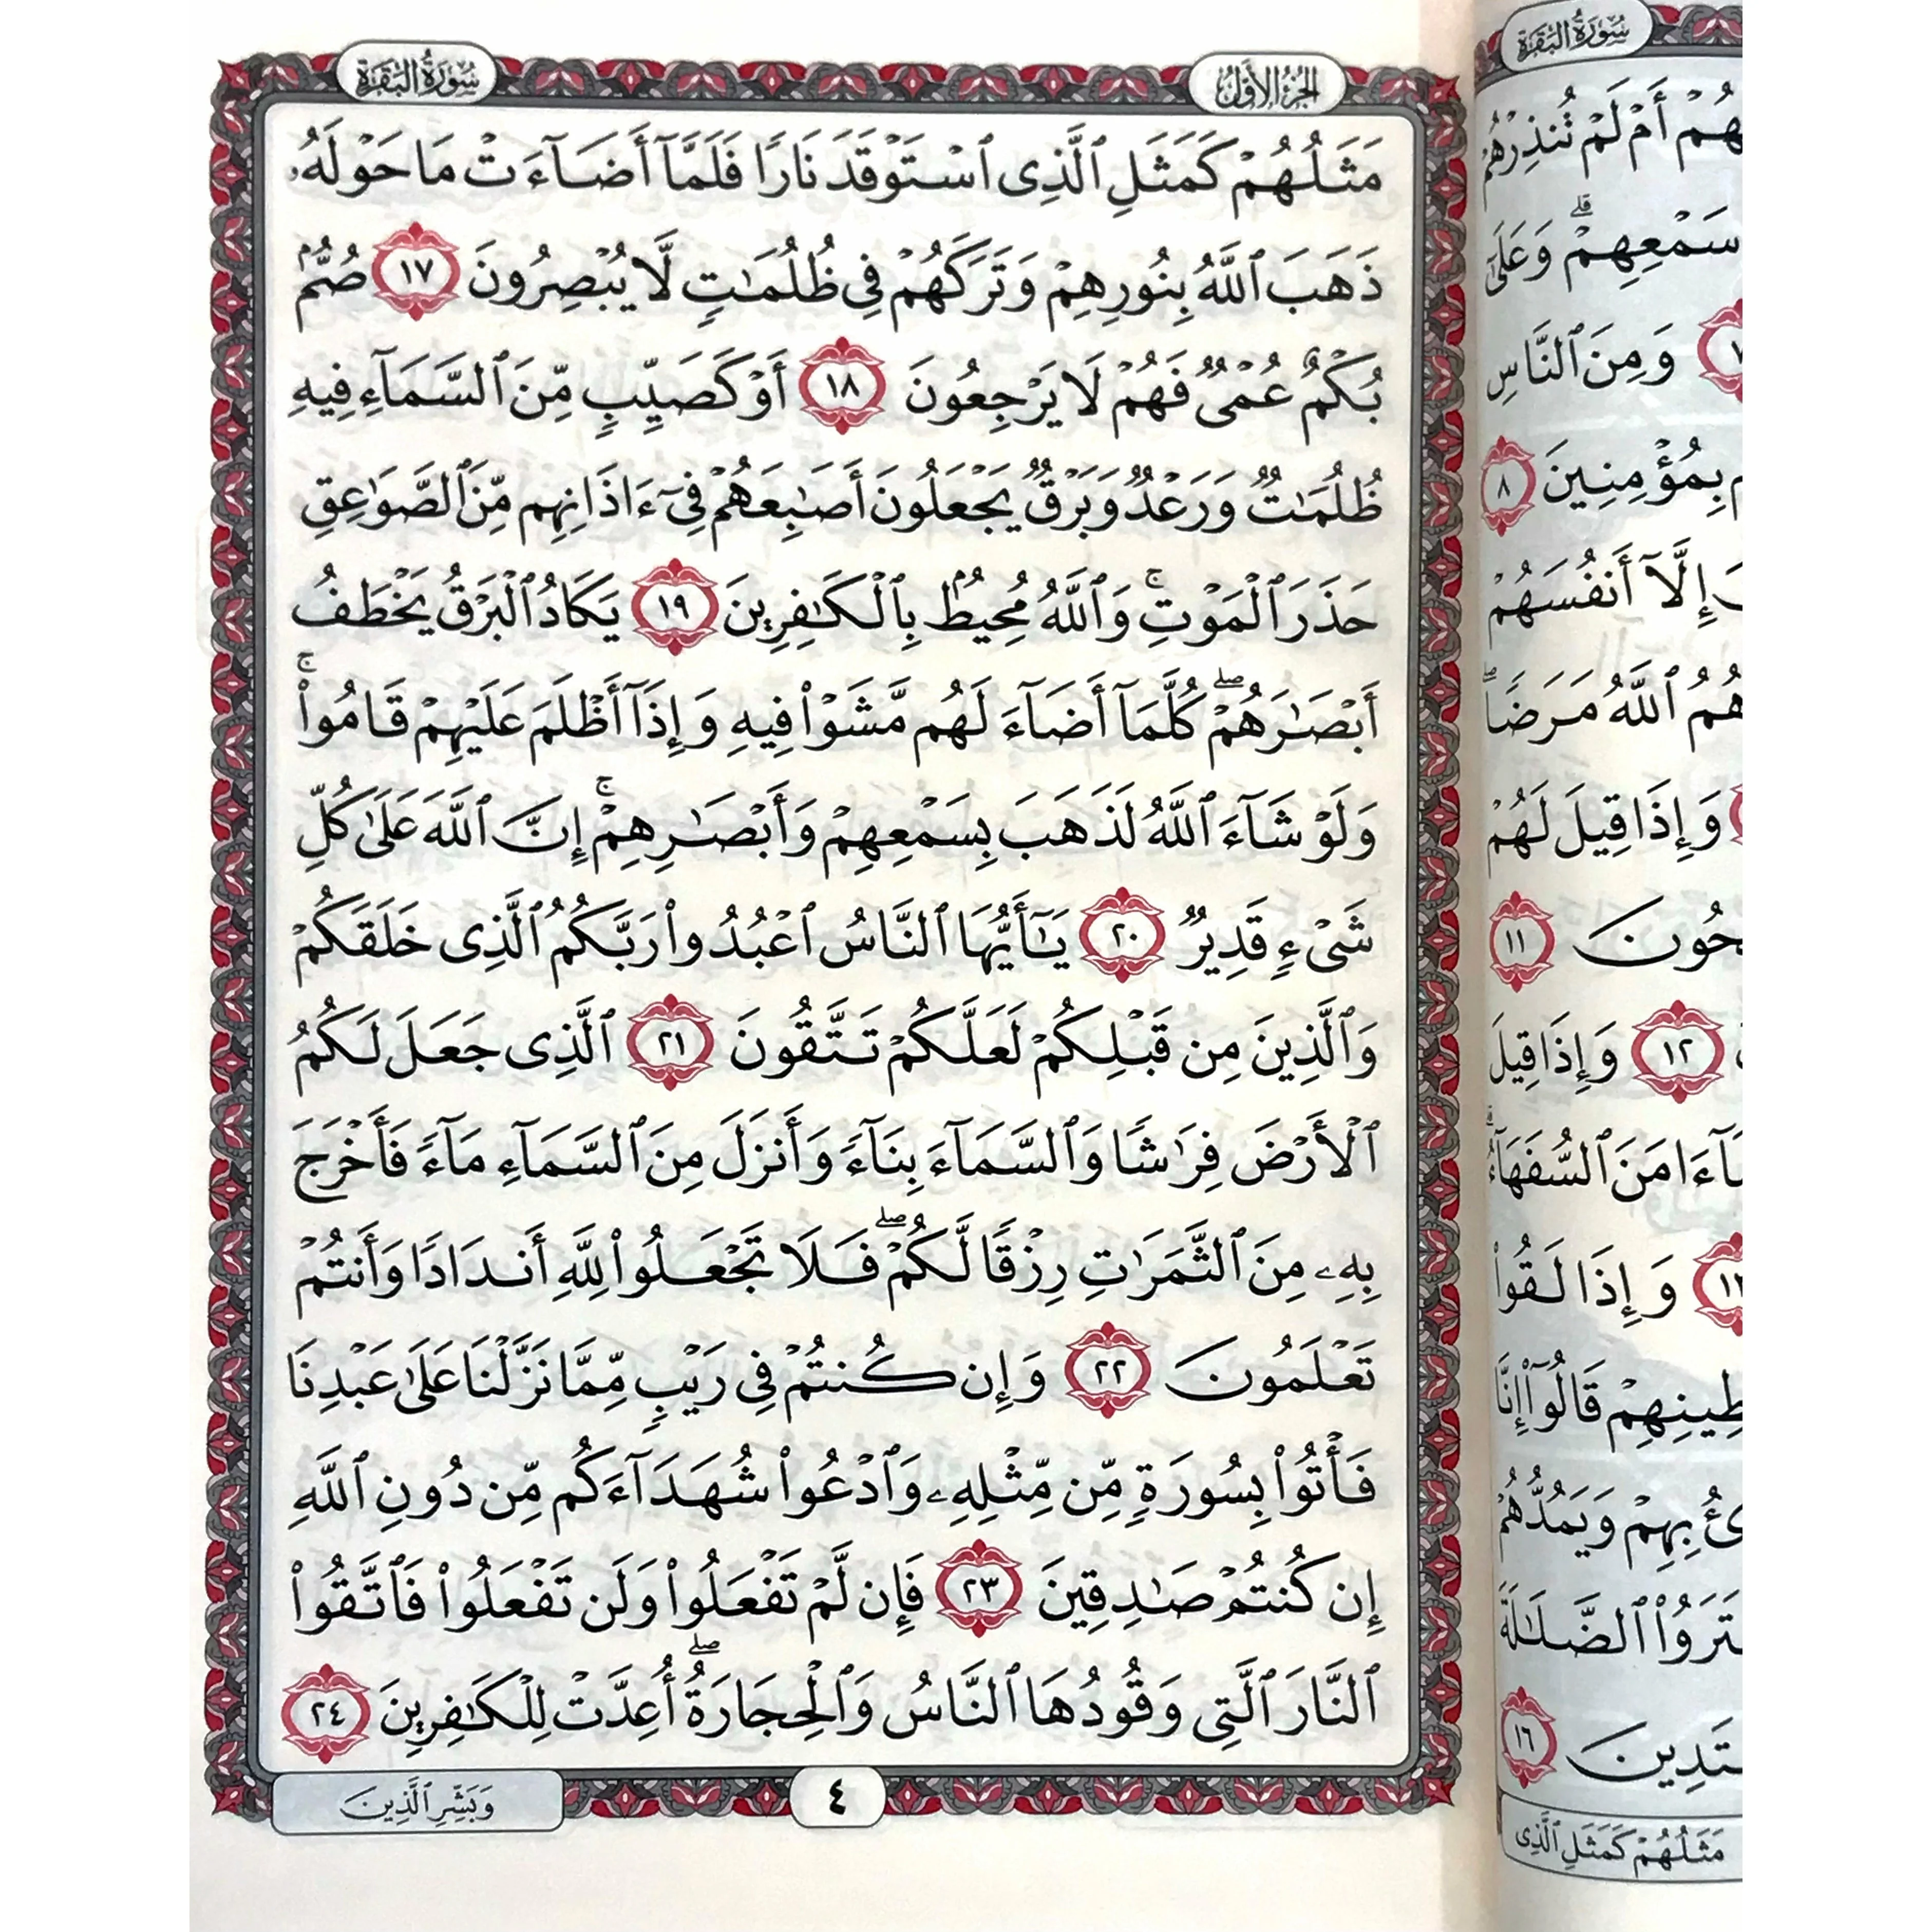 سُورَةُ البَقَرَةِ
الجُزْءُ الأَوَّلُ
مَثَلُهُمْ كَمَثَلِ ٱلَّذِى ٱسْتَوْقَدَ نَارًا فَلَمَّآ أَضَآءَتْ مَا حَوْلَهُۥ
ذَهَبَ ٱللَّهُ بِنُورِهِمْ وَتَرَكَهُمْ فِى ظُلُمَـٰتٍ لَّا يُبْصِرُونَ ١٧ صُمٌّۢ
بُكْمٌ عُمْىٌ فَهُمْ لَا يَرْجِعُونَ ١٨ أَوْ كَصَيِّبٍ مِّنَ ٱلسَّمَآءِ فِيهِ
ظُلُمَـٰتٌ وَرَعْدٌ وَبَرْقٌ يَجْعَلُونَ أَصَـٰبِعَهُمْ فِىٓ ءَاذَانِهِم مِّنَ ٱلصَّوَٰعِقِ
حَذَرَ ٱلْمَوْتِ ۚ وَٱللَّهُ مُحِيطٌۢ بِٱلْكَـٰفِرِينَ ١٩ يَكَادُ ٱلْبَرْقُ يَخْطَفُ
أَبْصَـٰرَهُمْ ۖ كُلَّمَآ أَضَآءَ لَهُم مَّشَوْا۟ فِيهِ وَإِذَآ أَظْلَمَ عَلَيْهِمْ قَامُوا۟ ۚ
وَلَوْ شَآءَ ٱللَّهُ لَذَهَبَ بِسَمْعِهِمْ وَأَبْصَـٰرِهِمْ ۚ إِنَّ ٱللَّهَ عَلَىٰ كُلِّ
شَىْءٍ قَدِيرٌ ٢٠ يَـٰٓأَيُّهَا ٱلنَّاسُ ٱعْبُدُوا۟ رَبَّكُمُ ٱلَّذِى خَلَقَكُمْ
وَٱلَّذِينَ مِن قَبْلِكُمْ لَعَلَّكُمْ تَتَّقُونَ ٢١ ٱلَّذِى جَعَلَ لَكُمُ
ٱلْأَرْضَ فِرَٰشًا وَٱلسَّمَآءَ بِنَآءً وَأَنزَلَ مِنَ ٱلسَّمَآءِ مَآءً فَأَخْرَجَ
بِهِۦ مِنَ ٱلثَّمَرَٰتِ رِزْقًا لَّكُمْ ۖ فَلَا تَجْعَلُوا۟ لِلَّهِ أَندَادًا وَأَنتُمْ
تَعْلَمُونَ ٢٢ وَإِن كُنتُمْ فِى رَيْبٍ مِّمَّا نَزَّلْنَا عَلَىٰ عَبْدِنَا
فَأْتُوا۟ بِسُورَةٍ مِّن مِّثْلِهِۦ وَٱدْعُوا۟ شُهَدَآءَكُم مِّن دُونِ ٱللَّهِ
إِن كُنتُمْ صَـٰدِقِينَ ٢٣ فَإِن لَّمْ تَفْعَلُوا۟ وَلَن تَفْعَلُوا۟ فَٱتَّقُوا۟
ٱلنَّارَ ٱلَّتِى وَقُودُهَا ٱلنَّاسُ وَٱلْحِجَارَةُ ۖ أُعِدَّتْ لِلْكَـٰفِرِينَ ٢٤
٤
وَبَشِّرِ ٱلَّذِينَ
سُورَةُ البَقَرَةِ
أَمْ لَمْ تُنذِرْهُمْ
سَمْعِهِمْ ۖ وَعَلَىٰٓ
وَمِنَ ٱلنَّاسِ
بِمُؤْمِنِينَ ٨
إِلَّآ أَنفُسَهُمْ
ٱللَّهُ مَرَضًا ۖ
وَإِذَا قِيلَ لَهُمْ
١١
١٢ وَإِذَا قِيلَ
ءَامَنَ ٱلسُّفَهَآءُ ۗ
وَإِذَا لَقُوا۟
قَالُوٓا۟ إِنَّا
بِهِمْ وَيَمُدُّهُمْ
ٱلضَّلَـٰلَةَ
١٦
مَثَلُهُمْ كَمَثَلِ ٱلَّذِى